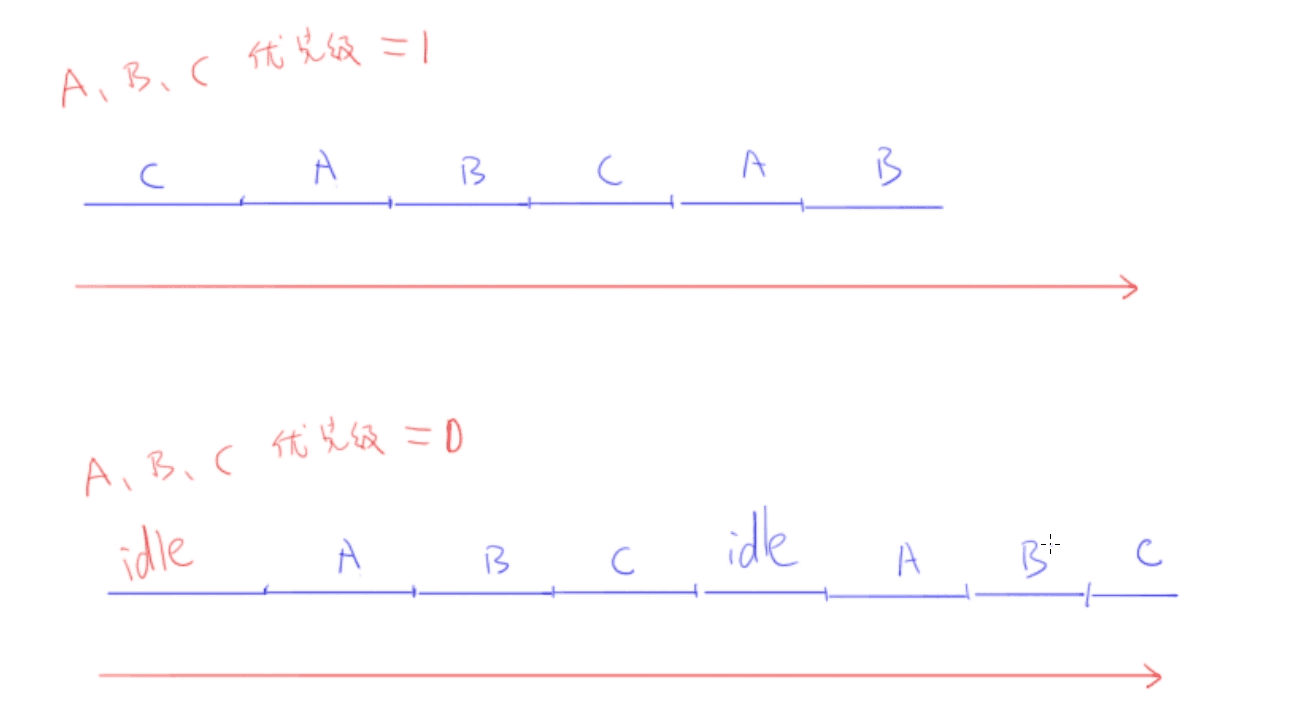 A、B、C 优先级 =1
C A B C A B
A、B、C 优先级 =0
idle A B C idle A B C